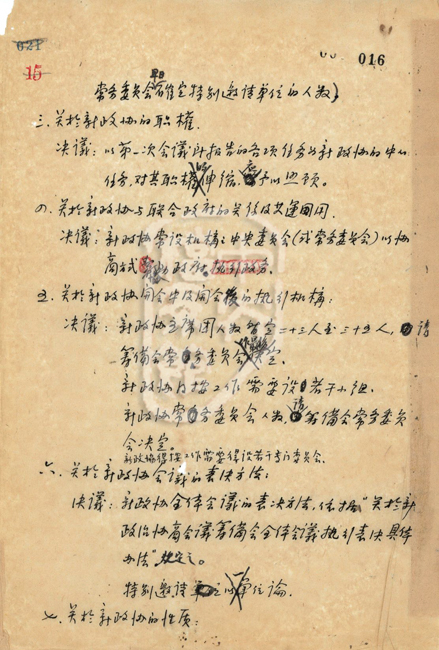 021
016
15
常务委员会确定特别邀请单位的人数)
三、关於新政协的职权.
决议:以第一次会议所报告的各项任务为新政协的中心
任务,对其职权伸缩,应予以照顾。
四、关於新政协与联合政府的关系及其运用.
决议:新政协常设机构:中央委员会(或常务委员会)以协
商方式政府
五、关於新政协开会中及闭会後的执行机构:
决议:新政协主席团人数暂定二十三人至三十五人,请
筹备会常务委员会决定.
新政协内按工作需要设若干小组.
新政协常务委员会人数,请筹备会常务委员
会决定。
新政协得按工作需要得设若干专门委员会.
六、关於新政协会议的表决方法:
决议:新政协全体会议的表决方法,依据"关於新
政治协商会议筹备会全体会议执行表决具体
办法"规定之。
特别邀请单位以单位论.
七、关於新政协的性质: